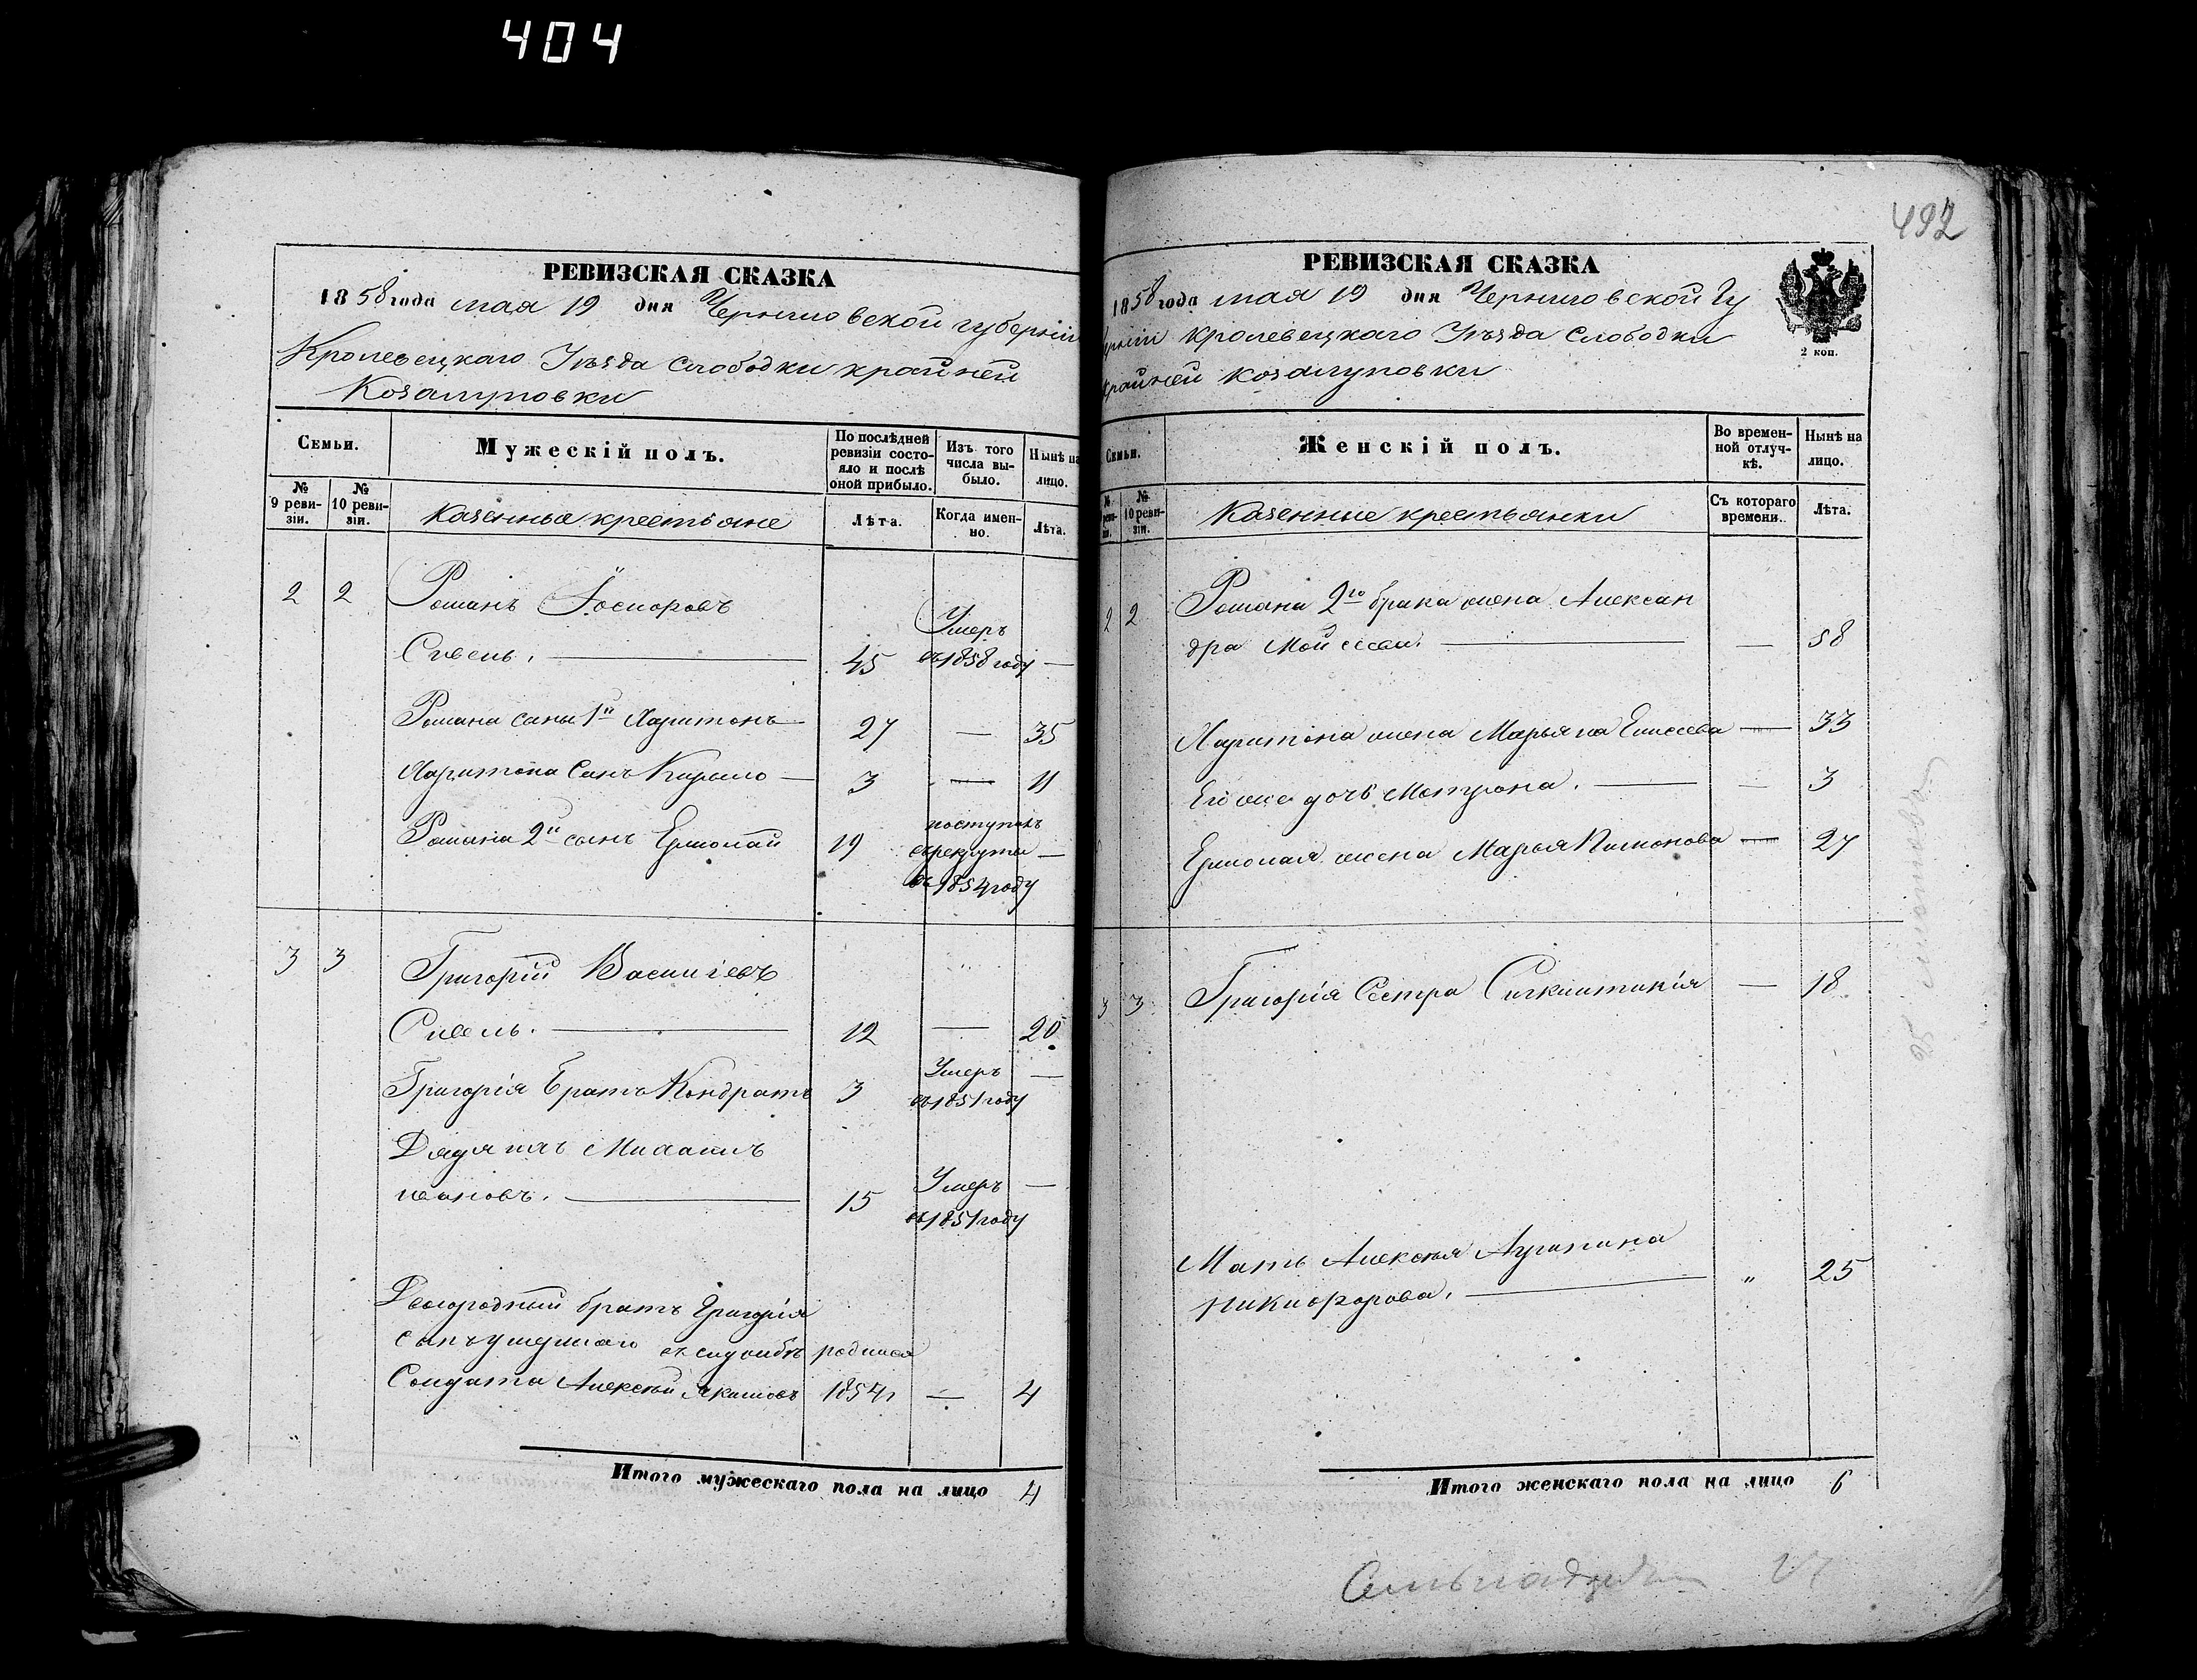 404
РЕВИЗСКАЯ СКАЗКА
1858 года мая 19 дня Черниговской губерніи
Кролевецкаго Уѣзда слободки крайней
Козацуповки
Семьи.
Мужескій полъ.
По послѣдней ревизіи состояло и послѣ оной прибыло.
Изъ того числа выбыло.
Нынѣ на лицо.
№ 9 ревизіи.
№ 10 ревизіи.
Казенные крестьяне
Лѣта.
Когда именно.
Лѣта.
2 2 Романъ Ѳосторовъ
Сивень. 45 Умеръ въ 1858 году —
Романа сынъ 1й Харитонъ 27 — 35
Харитона Сынъ Кирило 3 — 11
Романа 2й сынъ Ермолай 19 поступилъ въ рекруты въ 1854 году —
3 3 Григорій Васильевъ
Сивень. 12 — 20
Григорія Братъ Кондратъ 3 Умеръ въ 1851 году —
Дядя ихъ Михаилъ
Ивановъ. 15 Умеръ въ 1851 году —
Двоюродный братъ Григорія
сынъ умершаго въ службѣ родился
Солдата Алексѣй Якимовъ 1854 г — 4
Итого мужескаго пола на лицо 4
492
РЕВИЗСКАЯ СКАЗКА
1858 года мая 19 дня Черниговской Гу
берніи Кролевецкаго Уѣзда Слободки
крайней Козацуповки
2 коп.
Семьи.
Женскій полъ.
Во временной отлучкѣ.
Нынѣ на лицо.
№ 9 ревизіи.
№ 10 ревизіи.
Казенные крестьянки
Съ котораго времени.
Лѣта.
2 2 Романа 2го брака жена Алексан
дра Мойсеева. — 58
Харитона жена Марьяна Елисеева — 33
Его же дочь Мотрона. — 3
Ермолая жена Марья Пимонова — 27
3 3 Григорія Сестра Синклитикія — 18
Мать Алексѣя Агрипина
Никифорова. " 25
Итого женскаго пола на лицо 6